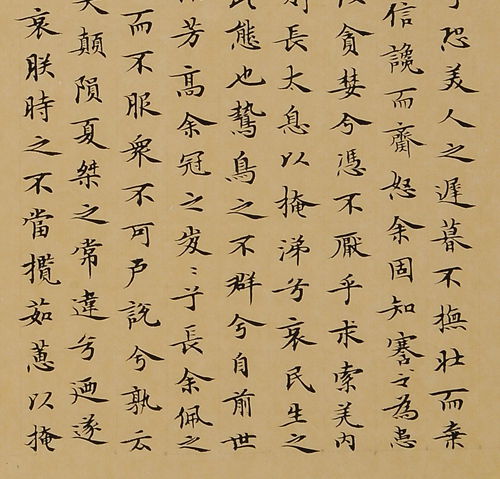 恐美人之遲暮不撫壯而棄
信讒而齌怒余固知謇謇之為患
貪婪兮憑不厭乎求索羌內
長太息以掩涕兮哀民生之
態也鷙鳥之不群兮自前世
芳高余冠之岌岌兮長余佩之
而不服衆不可戶說兮孰云
顛隕夏桀之常違兮迺遂
哀朕時之不當攬茹蕙以掩